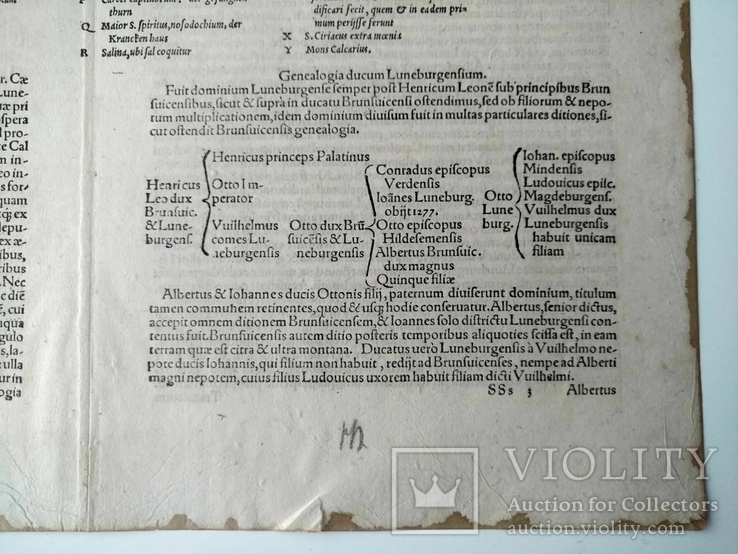 dificari fecit, quem & in eadem pri
thurn
mum perijsse serunt
Q Maior S. spiritus, nosodochium, der
Krancken haus
X S. Ciriacus extra mœnia
R Salina, ubi sal coquitur
Y Mons Calcarius.
Genealogia ducum Luneburgensium.
Fuit dominium Luneburgense semper post Henricum Leonẽ sub principibus Brun
suicensibus, sicut & supra in ducatu Brunsuicensi ostendimus, sed ob filiorum & nepo-
tum multiplicationem, idem dominium diuisum fuit in multas particulares ditiones, si-
cut ostendit Brunsuicensis genealogia.
Henricus
Leo dux
Brunsuic.
& Lune-
burgens.
Henricus princeps Palatinus
Otto Im-
perator
Vuilhelmus
comes Lu-
neburgensis
Otto dux Brũ
suicẽsis & Lu-
neburgensis
Conradus episcopus
Verdensis
Ioãnes Luneburg.
obijt 1277.
Otto episcopus
Hildesemensis
Albertus Brunsuic.
dux magnus
Quinque filiæ
Otto
Lune
burg.
Iohan. episcopus
Mindensis
Ludouicus episc.
Magdeburgens.
Vuilhelmus dux
Luneburgensis
habuit unicam
filiam
Albertus & Iohannes ducis Ottonis filij, paternum diuiserunt dominium, titulum
tamen communem retinentes, quod & usq; hodie conseruatur. Albertus, senior dictus,
accepit omnem ditionem Brunsuicensem, & Ioannes solo districtu Luneburgensi con-
tentus fuit. Brunsuicensis autem ditio posteris temporibus aliquoties scissa est, in eam
terram quæ est citra & ultra montana. Ducatus uerò Luneburgensis à Vuilhelmo ne-
pote ducis Iohannis, qui filium non habuit, redijt ad Brunsuicenses, nempe ad Alberti
magni nepotem, cuius filius Ludouicus uxorem habuit filiam dicti Vuilhelmi.
SSs 3 Albertus
VIOLITY
Auction for Collectors
auction.violity.com